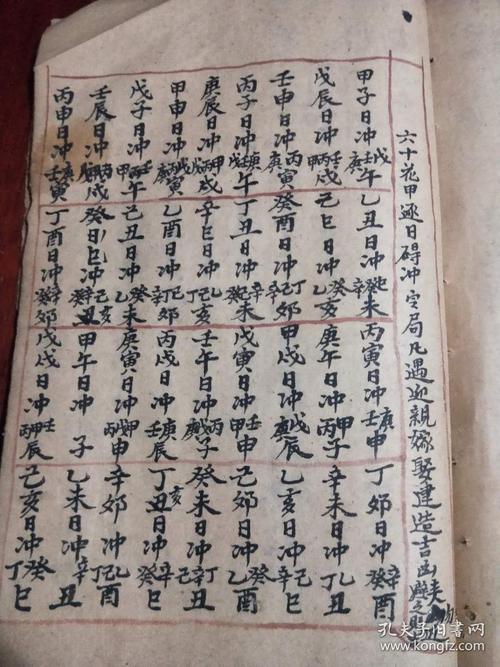 六十花甲逐日碍冲定局凡遇迎親嫁娶建造吉凶
甲子日冲戊壬庚午 乙丑日冲辛癸未 丙寅日冲庚壬申 丁卯日冲辛癸酉
戊辰日冲壬丙甲戌 己巳日冲癸乙亥 庚午日冲甲丙子 辛未日冲乙丁丑
壬申日冲丙庚寅 癸酉日冲丁己辛卯 甲戌日冲戊庚辰 乙亥日冲己辛巳
丙子日冲庚戊午 丁丑日冲辛未 戊寅日冲壬甲申 己卯日冲癸乙酉
庚辰日冲甲丙戌 辛巳日冲己乙丁亥 壬午日冲丙戊庚子 癸未日冲丁辛己丑
甲申日冲戊丙庚寅 乙酉日冲己丁辛卯 丙戌日冲庚戊壬辰 丁丑亥日冲己辛癸巳
戊子日冲壬丙甲午 己丑日冲癸乙未 庚寅日冲甲丙申 辛卯日冲乙己丁酉
壬辰日冲丙戌 癸巳日冲丁亥 甲午日冲子 乙未日冲辛丑
丙申日冲庚壬寅 丁酉日冲辛癸卯 戊戌日冲壬甲丙辰 己亥日冲癸丁巳
孔夫子旧书网
www.kongfz.com